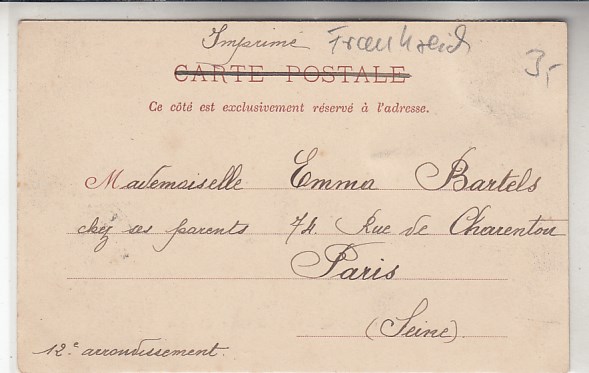 Imprimé Frankreich
3,-
CARTE POSTALE
Ce côté est exclusivement réservé à l'adresse.
Mademoiselle Emma Bartels
chez ses parents 74. Rue de Charenton
Paris
(Seine)
12e arrondissement.